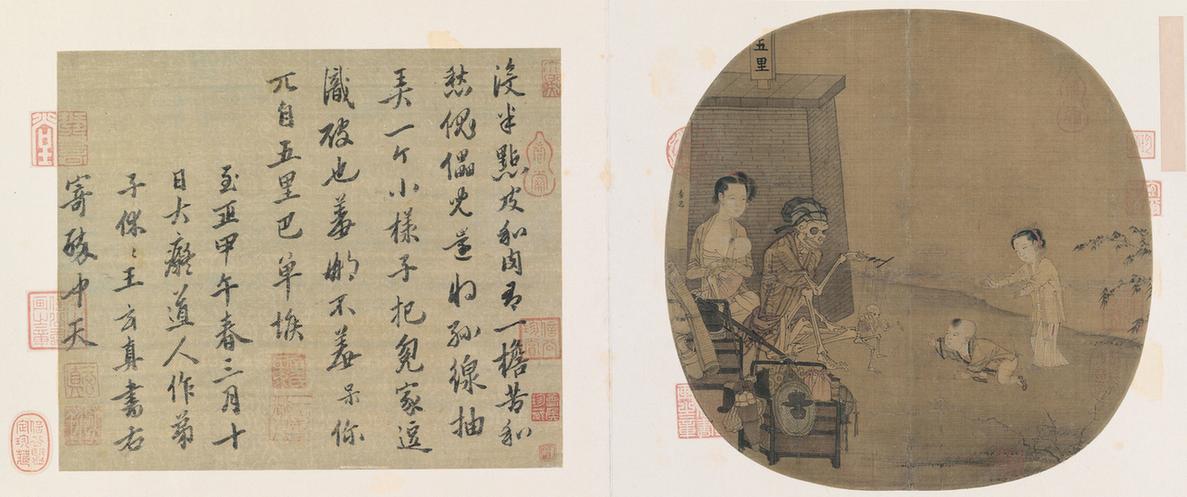 没半點皮和肉有一擔苦和
愁傀儡兒還將絲線抽
弄一个小樣子把冤家逗
識破也羞那不羞呆你
兀自五里巴單堠
至正甲午春三月十
日大癡道人作弟
子休々王玄真書右
寄醉中天
五里